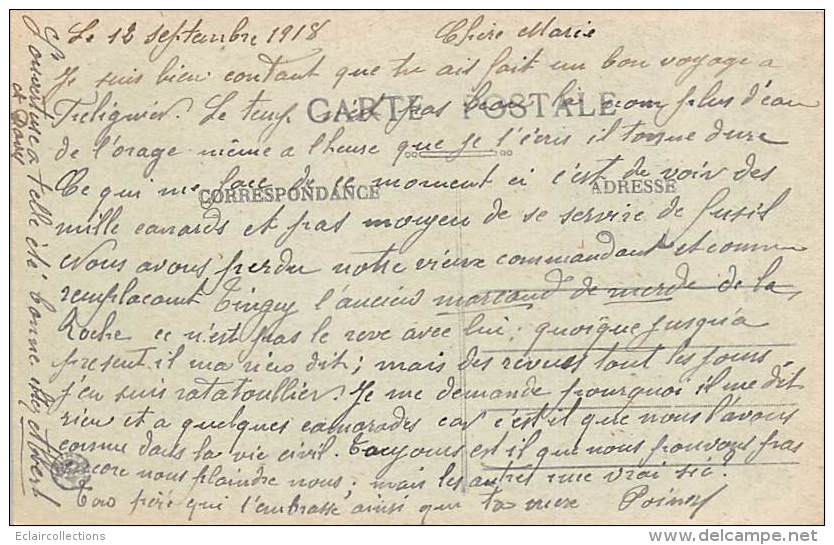 Le 12 septembre 1918 Chère Marie
Je suis bien contant que tu ais fait un bon voyage a
Treliguier. Le temp n'est pas beau la com plus d'eau
CARTE POSTALE
de l'orage même a l'heure que je t'écris il tonne dure
Ce qui me face de ce moment ci c'est de voir des
CORRESPONDANCE ADRESSE
mille canards et pas moyen de se servire de fusil
Nous avons perdu notre vieux commandant et comme
remplacant Tinguy l'ancien marcand de merde de la
Roche ce n'est pas le reve avec lui; quoique jusqu'a
present il ma rien dit; mais des revues tout les jours
j'en suis ratatoullier. Je me demande pourquoi il me dit
rien et a quelques camarades car c'est il que nous l'avons
connue dans la vie civil. Toujours est il que nous pouvons pas
encore nous plaindre nous; mais les autres une vrai sci?
Ton père qui t'embrasse ainsi que ta mere
L'ouverture a telle été bonne
et Davy
Eclaircollections
delcampe.net